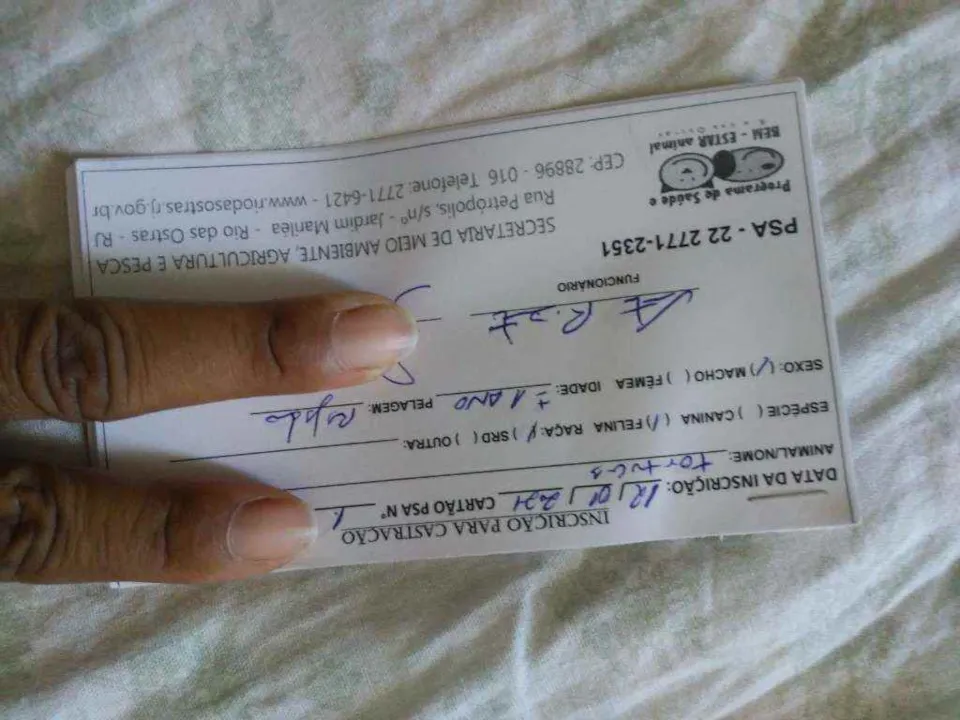 INSCRIÇÃO PARA CASTRAÇÃO
DATA DA INSCRIÇÃO: 12 / 01 / CARTÃO PSA Nº
ANIMAL/NOME:
ESPÉCIE ( ) CANINA (/) FELINA RAÇA: (/) SRD ( ) OUTRA:
SEXO: (/) MACHO ( ) FÊMEA IDADE: ± 1 ANO PELAGEM:
FUNCIONÁRIO
PSA - 22 2771-2351
Programa de Saúde e
BEM - ESTAR animal
SECRETARIA DE MEIO AMBIENTE, AGRICULTURA E PESCA
Rua Petrópolis, s/nº - Jardim Mariléa - Rio das Ostras - RJ
CEP: 28896 - 016 Telefone: 2771-6421 - www.riodasostras.rj.gov.br